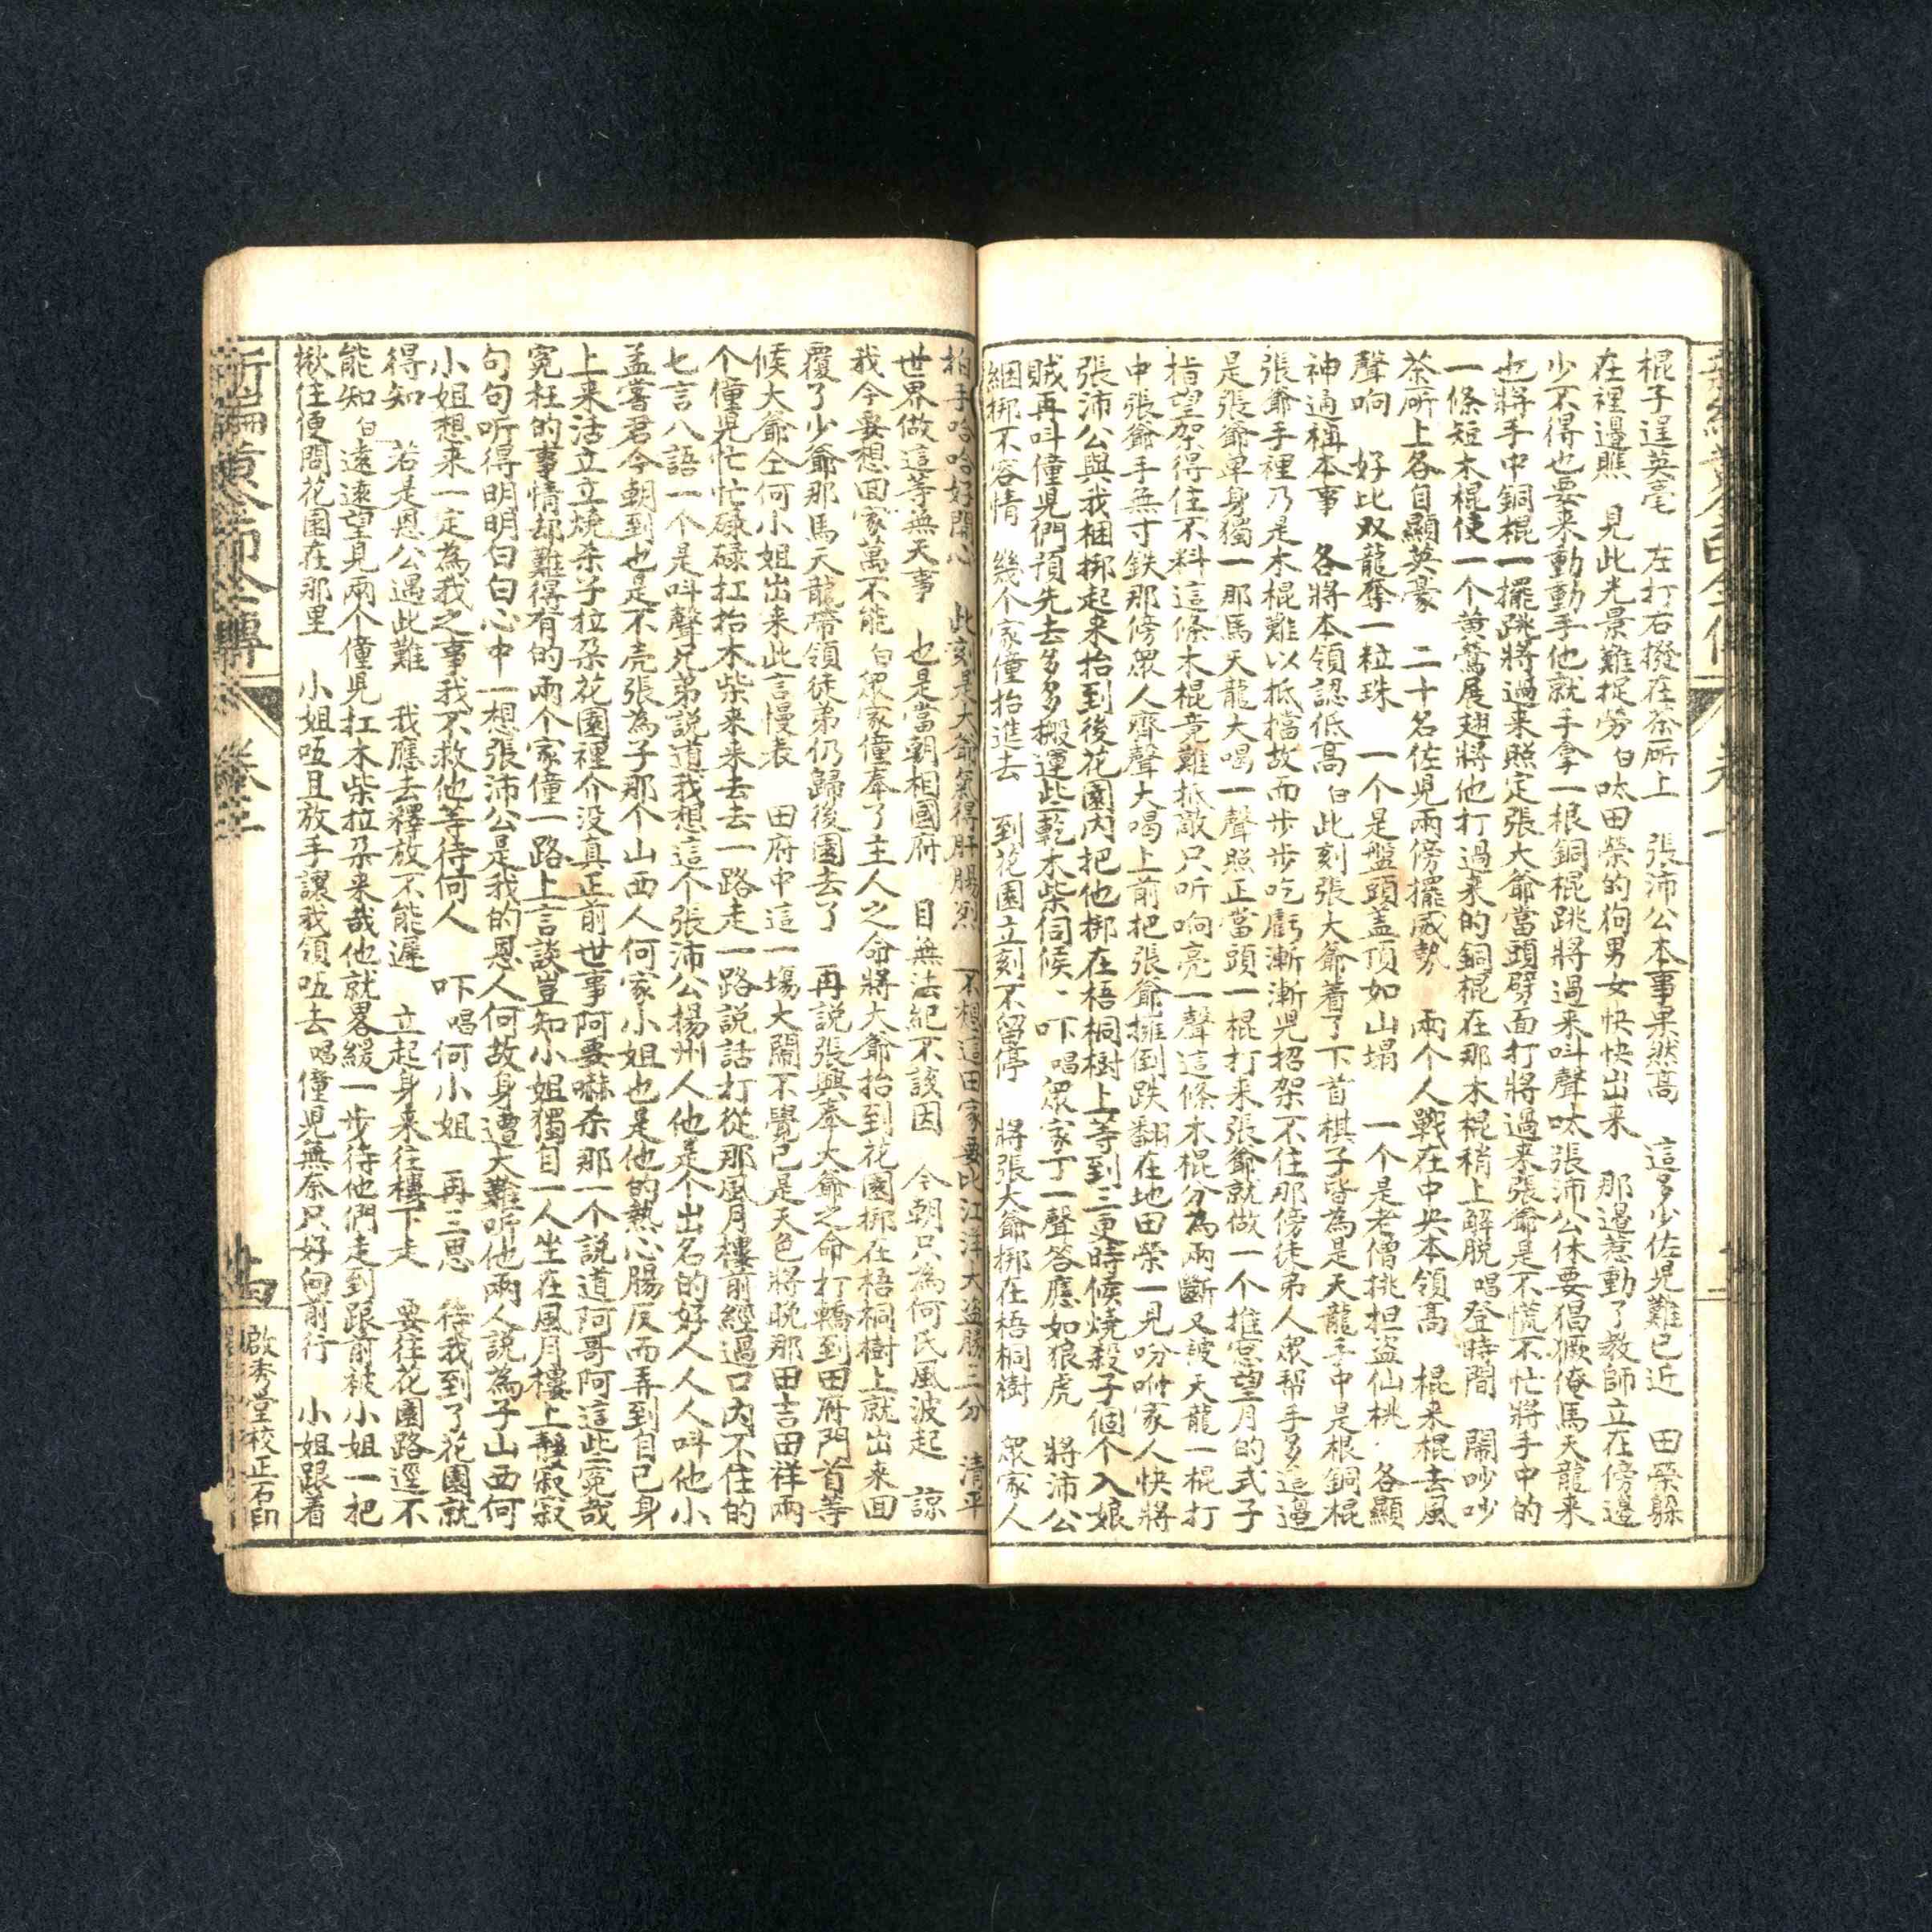 棍子逞英毫　左打右撥在茶所上　張沛公本事果然高　這多少佐児難已近　田榮躲
在裡邉瞧　見此光景難捉勞白呔田榮的狗男女快快出来　那邉惹動了教師立在傍邉
少不得也要来動動手他就手拿一根銅棍跳將過来呌聲呔張沛公休要猖獗俺馬天龍来
也將手中銅棍一擺跳將過来照定張大爺當頭劈面打將過来張爺是不慌不忙將手中的
一條短木棍使一个黄鶯展翅將他打過来的銅棍在那木棍稍上解脱唱登時間　鬧吵吵
茶所上各自顯英豪　二十名佐児兩傍擺威勢　兩个人戰在中央本領高　棍来棍去風
聲响　好比双龍奪一粒珠　一个是盤頭盖頂如山塌　一个是老僧挑担盜仙桃　各顯
神通稱本事　各將本領認低高白此刻張大爺着了下首棋子皆為是天龍手中是根銅棍
張爺手裡乃是木棍難以抵擋故而步步吃虧漸漸児招架不住那傍徒弟人眾帮手多這邉
是張爺单身獨一那馬天龍大喝一聲照正當頭一棍打来張爺就做一个推窓望月的式子
指望架得住不料這條木棍竟難抵敵只听响亮一聲這條木棍分為兩斷又被天龍一棍打
中張爺手無寸鉄那傍眾人齊聲大喝上前把張爺擁倒跌翻在地田榮一見吩咐家人快將
張沛公與我梱挷起来抬到後花園内把他挷在梧桐樹上等到三更時候燒殺子個个入娘
賊再呌僮児們預先去多多搬運些乾木柴伺候　吓唱眾家丁一聲答應如狼虎　將沛公
綑挷不容情　幾个家僮抬進去　到花園立刻不留停　將張大爺挷在梧桐樹　眾家人
拍手哈哈好開心　此刻是大爺氣得肝腸烈　不想這田家要比江洋大盜勝三分　清平
世界做這等無天事　也是當朝相國府　目無法紀不該因　今朝只為何氏風波起　諒
我今要想囬家萬不能白眾家僮奉了主人之命將大爺抬到花園挷在梧桐樹上就出来囬
覆了少爺那馬天龍帶領徒弟仍歸後園去了　再説張興奉大爺之命打轎到田府門首等
候大爺仝何小姐出来此言慢表　田府中這一塲大鬧不覺已是天色將晚那田吉田祥兩
个僮児忙忙碌碌扛抬木柴来来去去一路走一路説話打從那風月樓前經過口内不住的
七言八語一个是呌聲兄弟説道我想這个張沛公揚州人他是个出名的好人人人呌他小
孟嘗君今朝到也是不壳張為子那个山西人何家小姐也是他的熱心腸反而弄到自已身
上来活立立燒杀子拉朶花園裡介没真正前世事阿要嚇杀那一个説道阿哥阿這些寃哉
寃枉的事情却難得有的兩个家僮一路上言談豈知小姐獨自一人坐在風月樓上静寂寂
句句听得明明白白心中一想張沛公是我的恩人何故身遭大難听他兩人説為子山西何
小姐想来一定為我之事我不救他等待何人　吓唱何小姐　再三思　待我到了花園就
得知　若是恩公遇此難　我應去釋放不能遲　立起身来往樓下走　要往花園路逕不
能知白遠遠望見兩个僮児扛木柴拉朶来哉他就畧緩一步待他們走到跟前被小姐一把
揪住便問花園在那里　小姐咂且放手讓我領咂去唱僮児無奈只好向前行　小姐跟着
新編黄金印全傳　卷三　啟秀堂校正石印